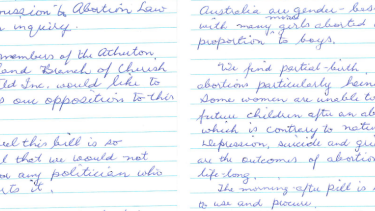 mission to Abortion Law
inquiry.
members of the Atherton,
land Branch of Cherish
ld Inc. would like to
s our opposition to this
eel this bill is so
l that we would not
any politician who
rts it.
Australia are gender-bas
with many mixed girls aborted
proportion to boys.
We find partial-birth
abortions particularly hein
Some women are unable to
future children after an ab
which is contrary to natur
Depression, suicide and gri
are the outcomes of abortion
life long.
The morning-after pill is
to use and procure.